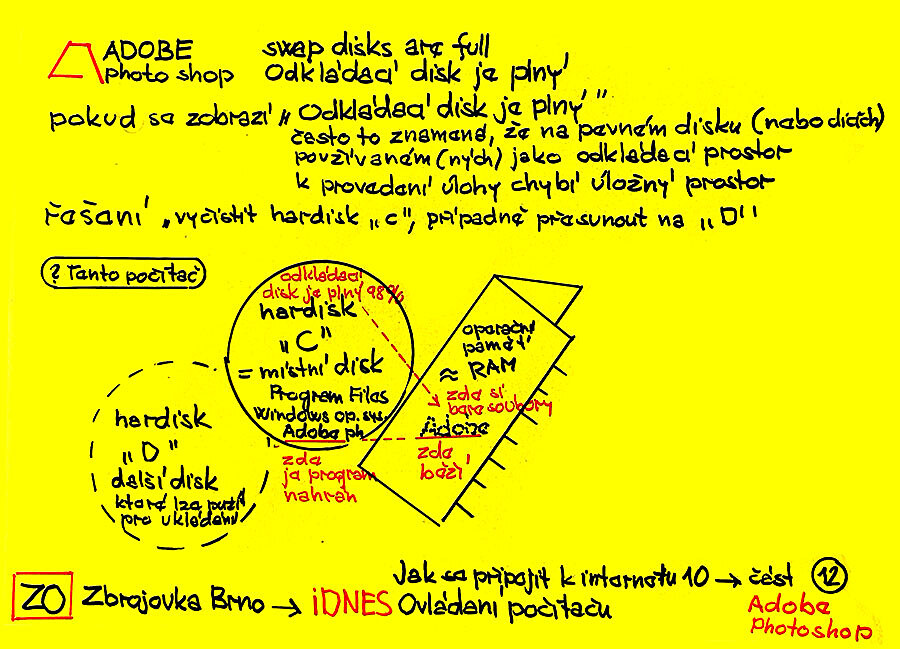 ADOBE swap disks are full
photo shop Odkládací disk je plný
pokud se zobrazí „Odkládací disk je plný"
často to znamená, že na pevném disku (nebo discích)
používaném (ných) jako odkládací prostor
k provedení úlohy chybí úložný prostor
řešení „vyčistit hardisk „C", případně přesunout na „D"
? Tento počítač
odkládací
disk je plný 98%
hardisk
„C"
= místní disk
Program Files
Windows op. sys.
Adobe ph
zde
je program
nahrán
hardisk
„D"
další disk
které lze použí
pro ukládání
operační
paměť
≈ RAM
zde si
bere soubory
Adobe
zde
běží
Jak se připojit k internetu 10 → část 12
ZO Zbrojovka Brno → iDNES Ovládání počítaču
Adobe
Photoshop